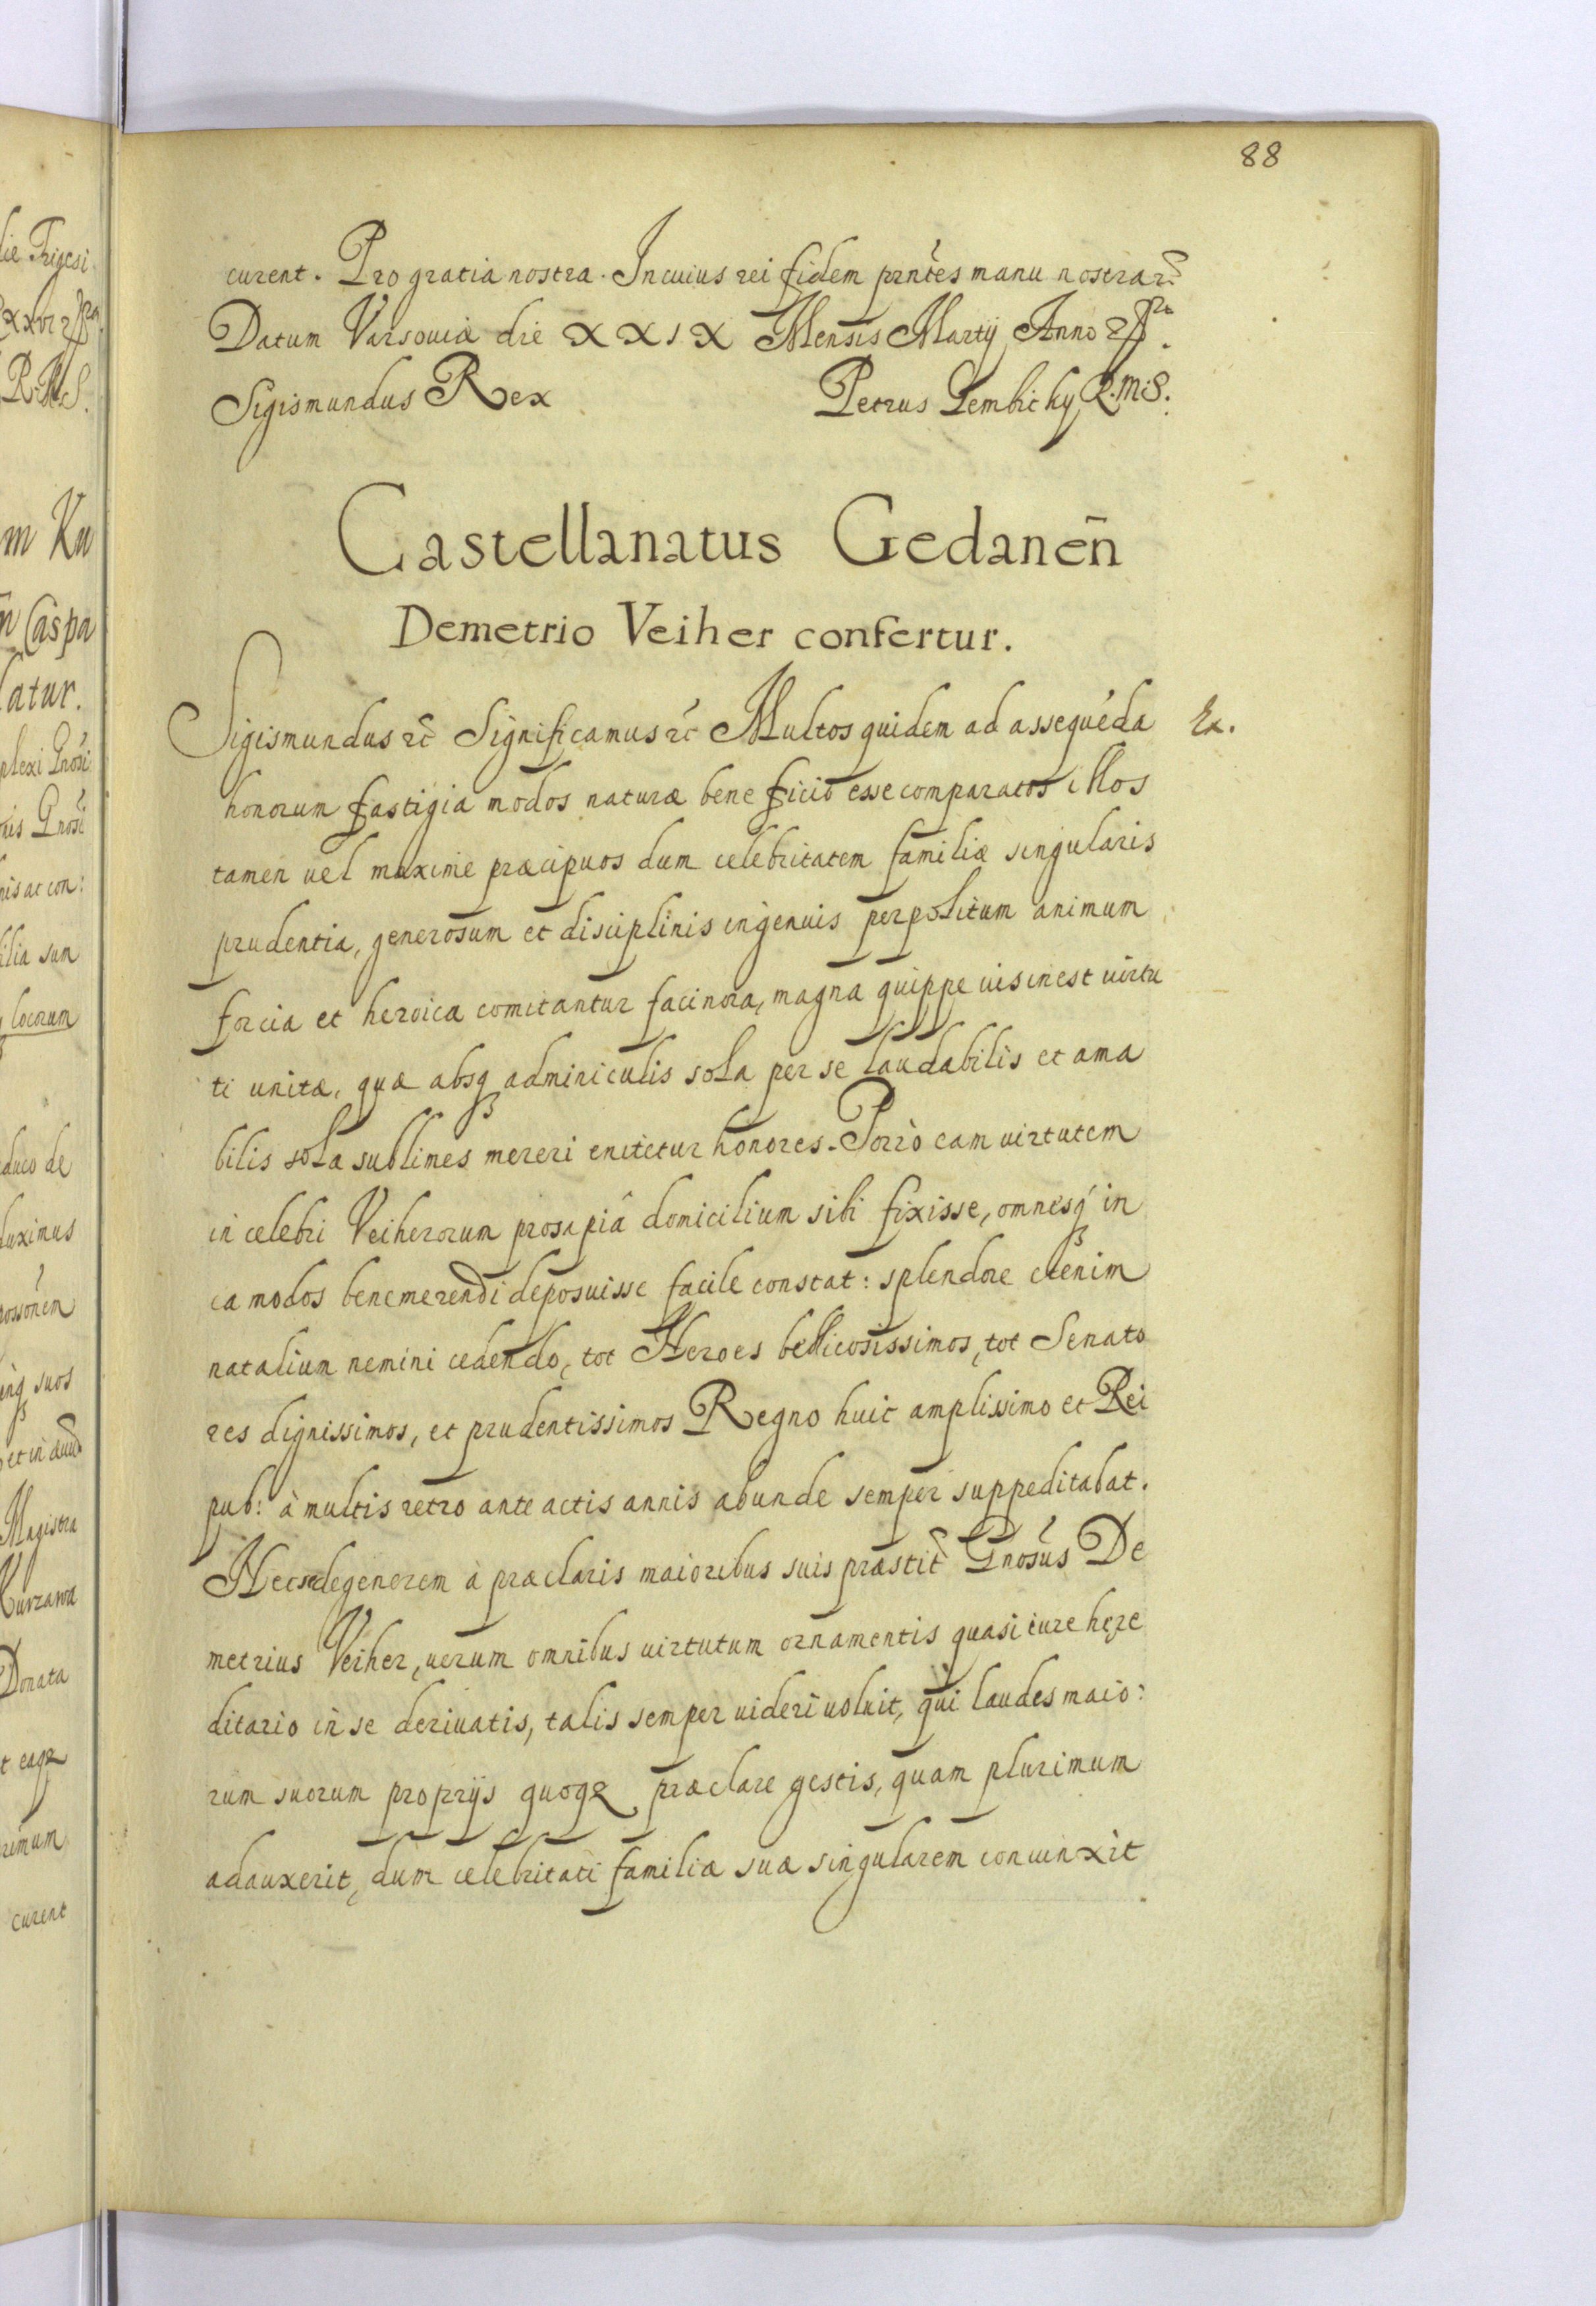 88
curent. Pro gratia nostra. In cuius rei fidem prñtes manu nostra
Datum Varsouiæ die XXIX Mensis Martij Anno
Sigismundus Rex Petrus Gembicky R.M.S.
Castellanatus Gedaneñ
Demetrio Veiher confertur.
Sigismundus etc̃ Significamus etc̃ Multos quidem ad assequẽda Ex.
honorum fastigia modos naturæ beneficio esse comparatos illos
tamen uel maxime præcipuos dum celebritatem familiæ singularis
prudentia, generosum et disciplinis ingenuis perpolitum animum
forcia et heroica comitantur facinora, magna quippe uis inest uirtu
ti unitæ, quæ absq adminiculis sola per se laudabilis et ama
bilis sola sublimes mereri enitetur honores. Porrò eam uirtutem
in celebri Veiherorum prosapiâ domicilium sibi fixisse, omnesq in
ea modos benemerendi deposuisse facile constat: splendore etenim
natalium nemini cedendo, tot Heroes bellicosissimos, tot Senato
res dignissimos, et prudentissimos Regno huic amplissimo et Rei
pub: à multis retro ante actis annis abunde semper suppeditabat.
Nec se degenerem à præclaris maioribus suis præstit Gnosus De
metrius Veiher, uerum omnibus uirtutum ornamentis quasi iure hęre
ditario in se deriuatis, talis semper uideri uoluit, qui laudes maio:
rum suorum proprijs quoqz præclare gestis, quam plurimum
adauxerit, dum celebritati familiæ suæ singularem coniunxit
die Trigesi
R.M.S.
m Ku
Caspa
latur.
plexi Gnosi
nis Gnosi
nis ac con:
ilia sun
locorum
duco de
duximus
possonem
suos
Magistra
Kurzawa
Donata
t eaqz
rimum
curent